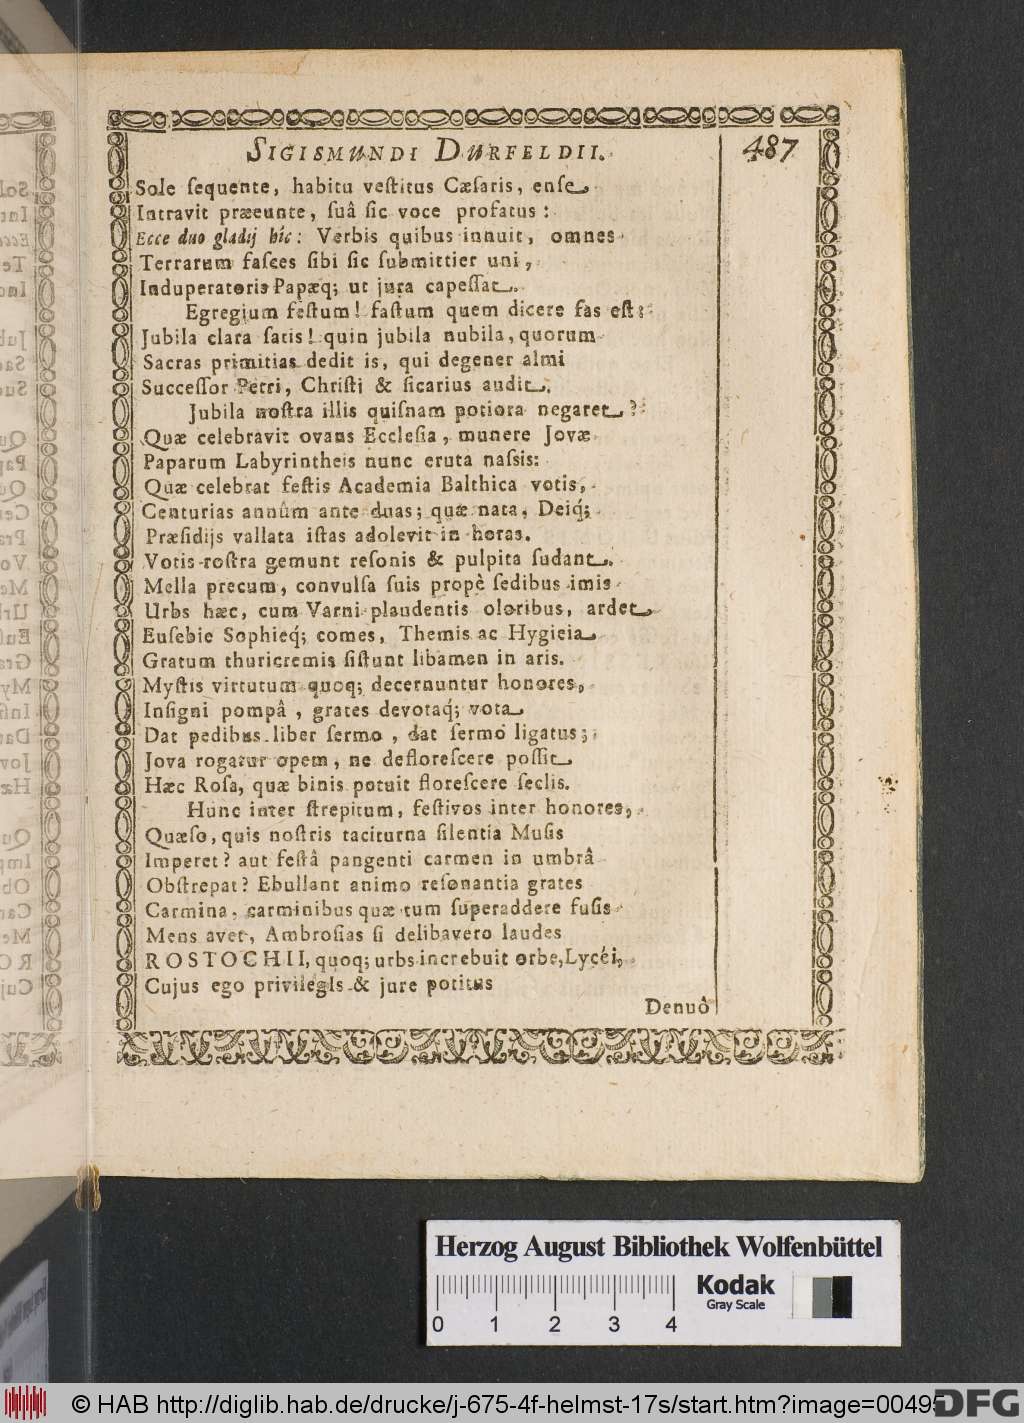 SIGISMUNDI DURFELDII. 487
Sole ſequente, habitu veſtitus Cæſaris, enſe
Intravit præeunte, ſuâ ſic voce profatus:
Ecce duo gladij hîc: Verbis quibus innuit, omnes
Terrarum faſces ſibi ſic ſubmittier uni,
Induperatoris Papæq; ut jura capeſſat.
Egregium feſtum! faſtum quem dicere fas eſt:
Jubila clara ſatis! quin jubila nubila, quorum
Sacras primitias dedit is, qui degener almi
Succeſſor Petri, Chriſti & ſicarius audit.
Jubila noſtra illis quiſnam potiora negaret?
Quæ celebravit ovans Eccleſia, munere Jovæ
Paparum Labyrintheis nunc eruta naſsis:
Quæ celebrat feſtis Academia Balthica votis,
Centurias annûm ante duas; quæ nata, Deiq́;
Præſidijs vallata iſtas adolevit in horas.
Votis roſtra gemunt reſonis & pulpita ſudant.
Mella precum, convulſa ſuis propè ſedibus imis
Urbs hæc, cum Varni plaudentis oloribus, ardet
Euſebie Sophieq́; comes, Themis ac Hygieia
Gratum thuricremis ſiſtunt libamen in aris.
Myſtis virtutum quoq; decernuntur honores,
Inſigni pompâ, grates devotaq́; vota
Dat pedibus liber ſermo, dat ſermo ligatus;
Jova rogatur opem, ne defloreſcere poſſit
Hæc Roſa, quæ binis potuit floreſcere ſeclis.
Hunc inter ſtrepitum, feſtivos inter honores,
Quæſo, quis noſtris taciturna ſilentia Muſis
Imperet? aut feſtâ pangenti carmen in umbrâ
Obſtrepat? Ebullant animo reſonantia grates
Carmina, carminibus quæ tum ſuperaddere fuſis
Mens avet, Ambroſias ſi delibavero laudes
ROSTOCHII, quoq; urbs increbuit orbe, Lycéi,
Cujus ego privilegIs & jure potitus
Denuô
Herzog August Bibliothek Wolfenbüttel
Kodak
Gray Scale
0 1 2 3 4
© HAB http://diglib.hab.de/drucke/j-675-4f-helmst-17s/start.htm?image=00495
DFG